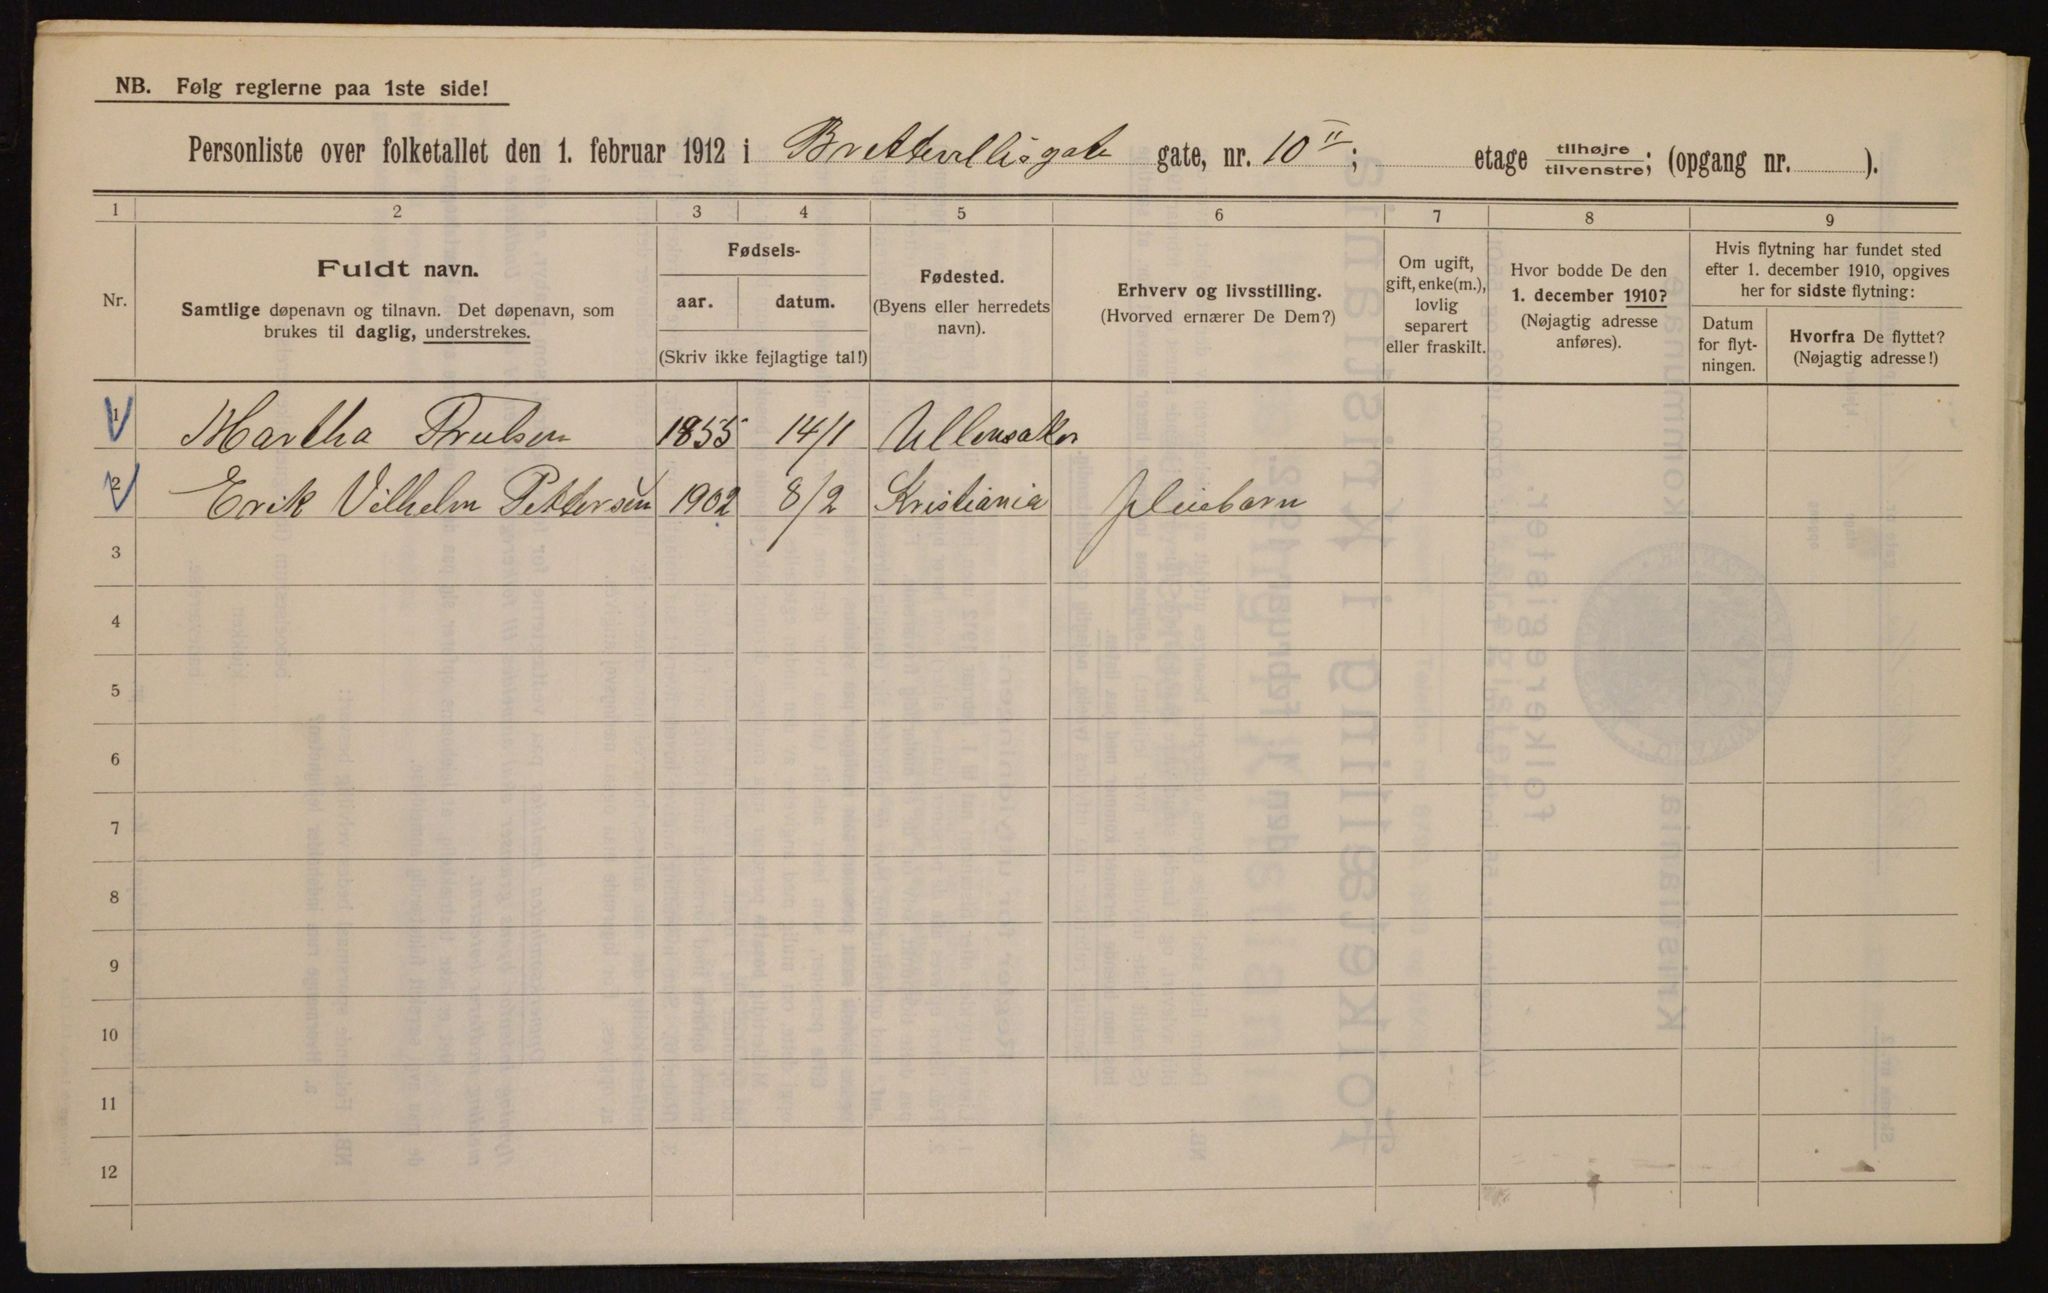 NB. Følg reglerne paa 1ste side!
Personliste over folketallet den 1. februar 1912 i Brettevillisgate gate, nr. 10 II; etage tilhøjre/tilvenstre; (opgang nr. ).
1 2 3 4 5 6 7 8 9
Nr.
Fuldt navn.
Samtlige døpenavn og tilnavn. Det døpenavn, som
brukes til daglig, understrekes.
Fødsels-
aar. datum.
(Skriv ikke fejlagtige tal!)
Fødested.
(Byens eller herredets
navn).
Erhverv og livsstilling.
(Hvorved ernærer De Dem?)
Om ugift,
gift, enke(m.),
lovlig
separert
eller fraskilt.
Hvor bodde De den
1. december 1910?
(Nøjagtig adresse
anføres).
Hvis flytning har fundet sted
efter 1. december 1910, opgives
her for sidste flytning:
Datum
for flyt-
ningen.
Hvorfra De flyttet?
(Nøjagtig adresse!)
1 Martha Trulsen 1855 14/1 Ullensaker
2 Erik Vilhelm Pettersen 1902 8/2 Kristiania pleiebarn
3
4
5
6
7
8
9
10
11
12